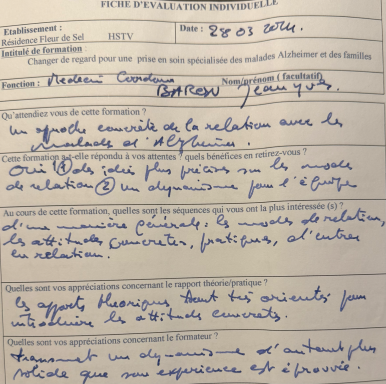 FICHE D'EVALUATION INDIVIDUELLE
Etablissement :
Résidence Fleur de Sel HSTV
Date : 28 03 2024.
Intitulé de formation :
Changer de regard pour une prise en soin spécialisée des malades Alzheimer et des familles
Fonction : Medecin Coordona
Nom/prénom ( facultatif)
BARON Jean Yves.
Qu'attendiez vous de cette formation ?
Un approche concrète de la relation avec les
malades d'Alzheimer.
Cette formation a-t-elle répondu à vos attentes ? quels bénéfices en retirez-vous ?
Oui ① des idées plus précises sur les modes
de relation ② un dynamisme pour l'équipe
Au cours de cette formation, quelles sont les séquences qui vous ont la plus interessée (s) ?
d'une manière générale : les modes de relation,
les attitudes concrètes, pratiques, d'entrer
en relation.
Quelles sont vos appréciations concernant le rapport théorie/pratique ?
les apports théoriques sont très orientés pour
introduire les attitudes concrètes.
Quelles sont vos appréciations concernant le formateur ?
transmet un dynamisme d'autant plus
solide que son expérience est éprouvée.